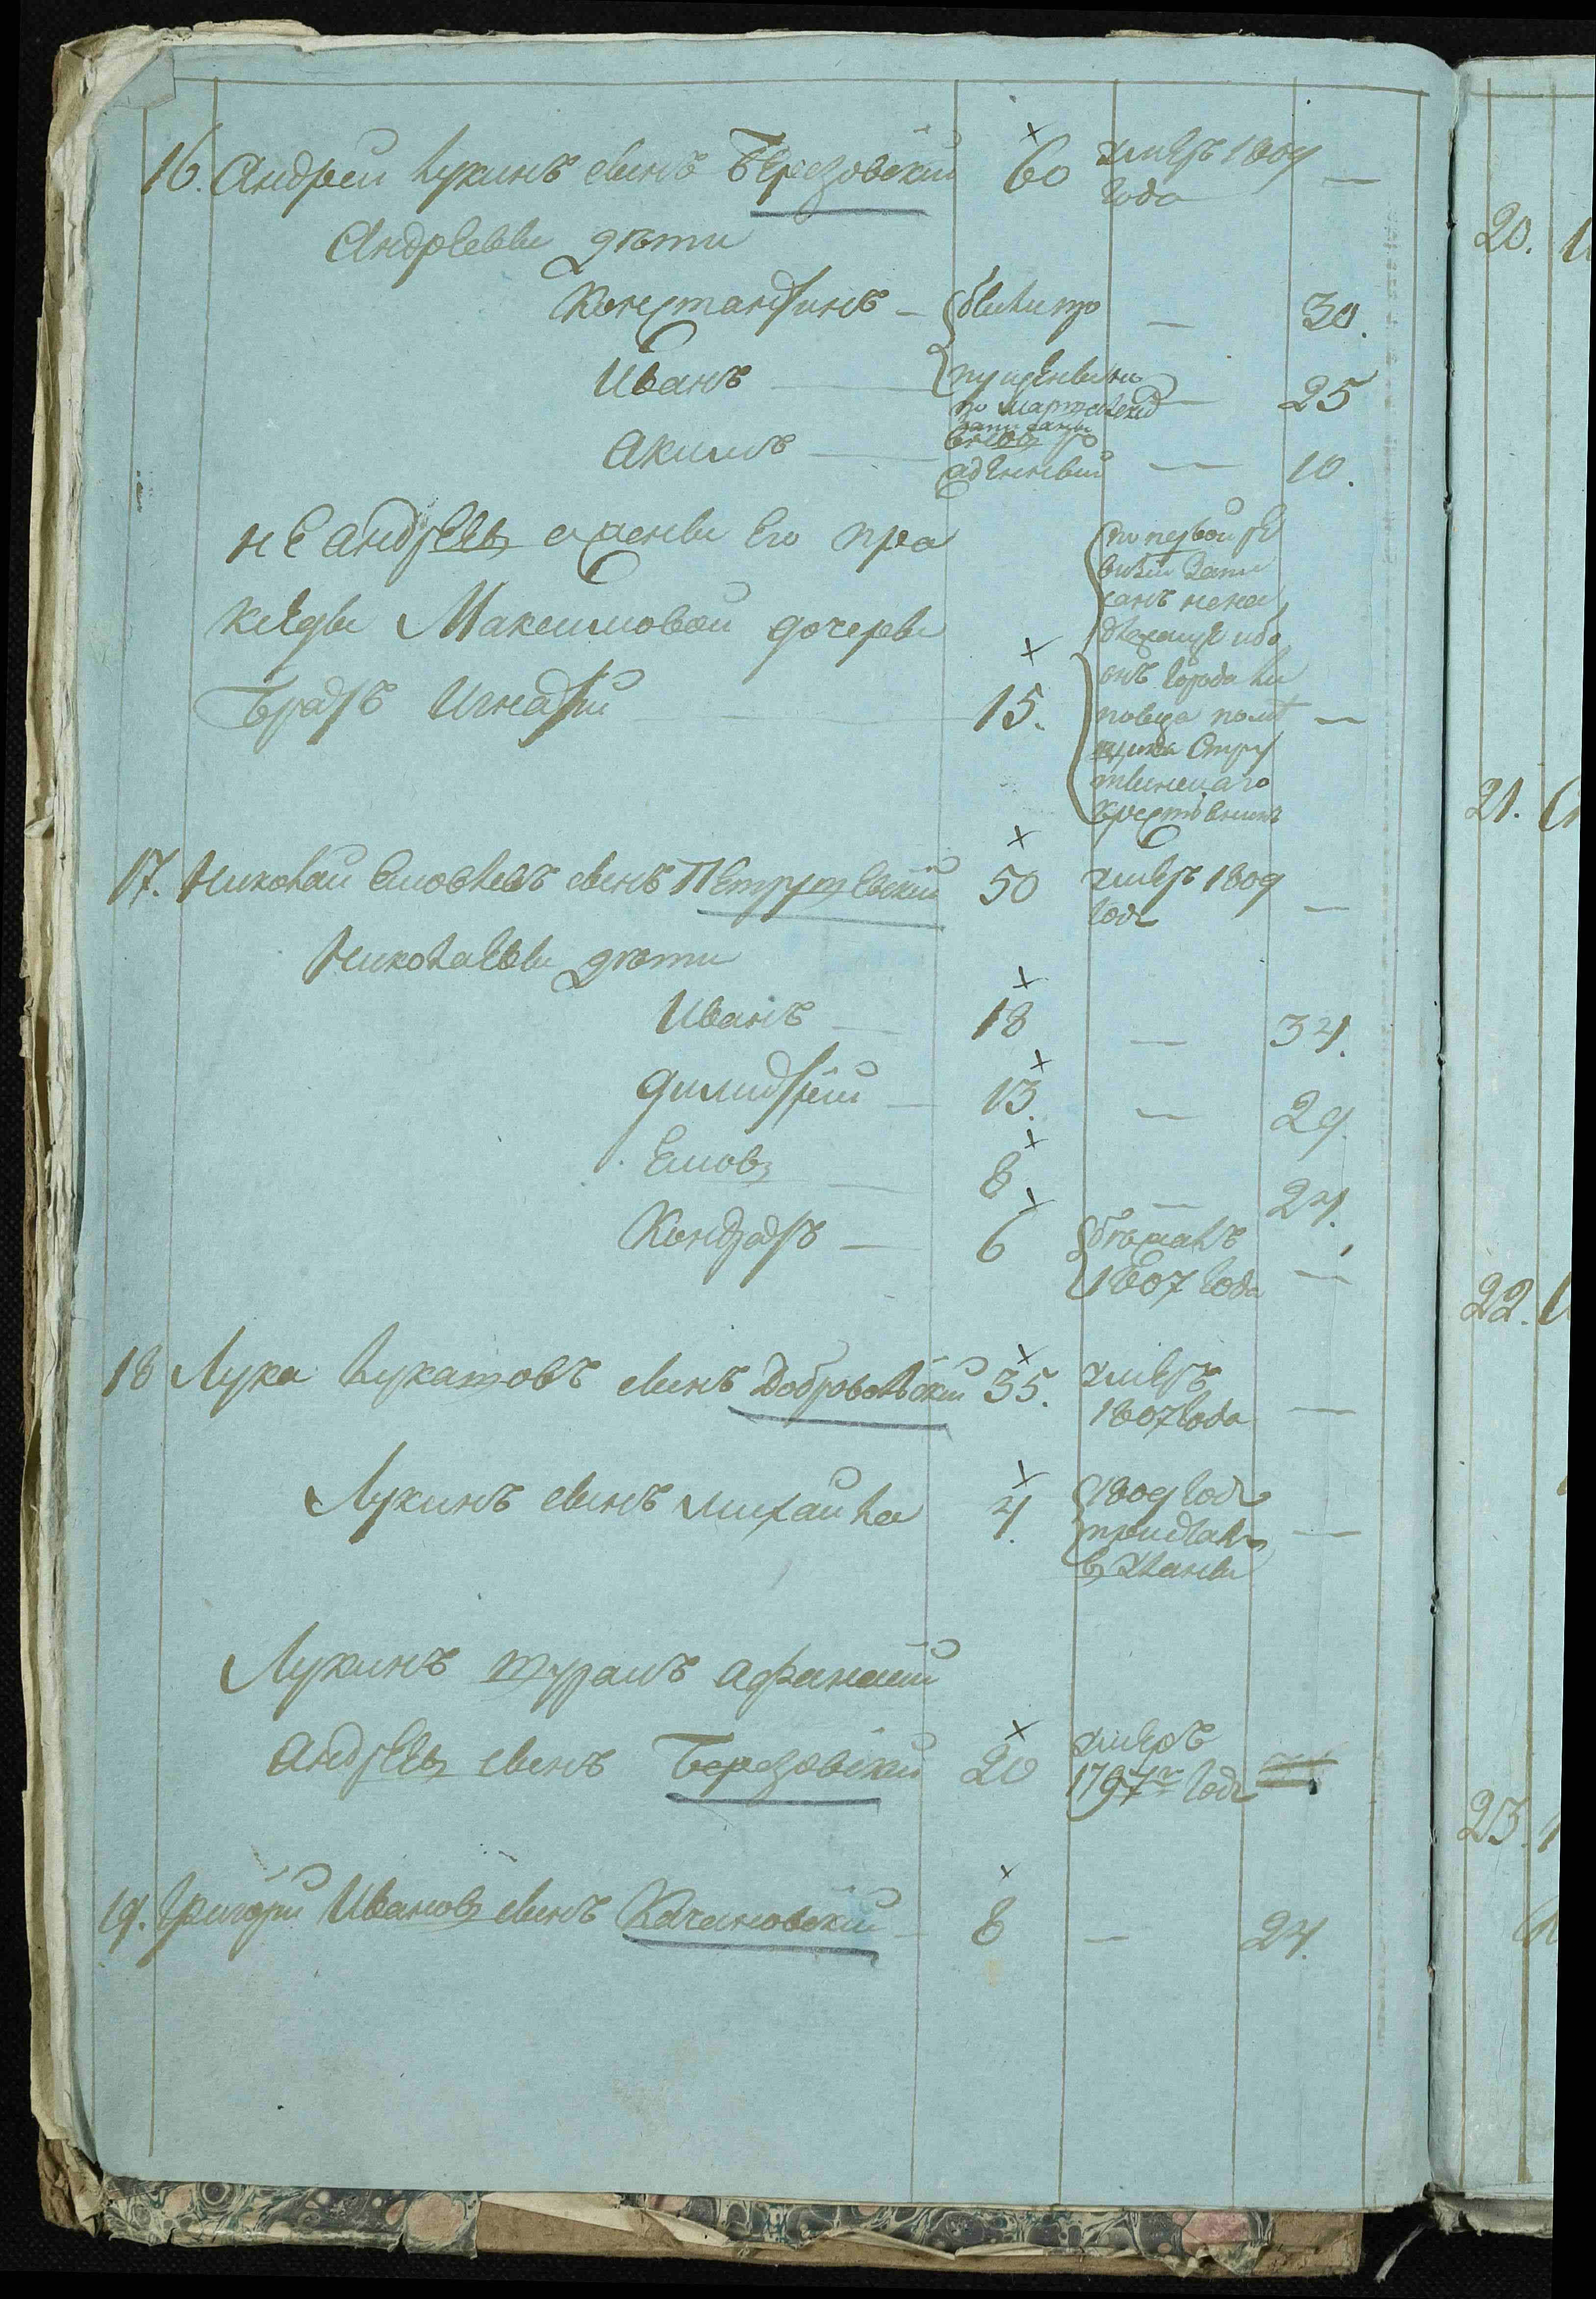 16. Андрей Лукинъ сынъ Березовский 60 умеръ 1809 года —
Андреевы дѣти
Константинъ — были про — 30.
Иванъ — пущены 25
Акимъ — — 10.
не Андреевъ а жены Его Пра
кседы Максимовой дочеры
Братъ Игнатий 15. —
по первой ре
визии запи
санъ нена
длежаще ибо
онъ города Ли
повца помѣ
щика
крестьянинъ
17. Николай Емовлевъ сынъ Петрушевский 50 умеръ 1809 году —
Николаевы дѣти
Иванъ — 18 — 34.
Димитрий — 13. — 29.
Емовъ — 8 — 24.
Кондратъ — 6 бѣжалъ 1807 года —
18 Лука Лукашовъ сынъ Добровольский 35. умеръ 1807 года —
Лукинъ сынъ михайла 4. 1809 году —
Лукинъ шуринъ афанасий
андреевъ сынъ Березовский 20 умеръ 1797го году
19. Григорий Ивановъ сынъ Качановский — 8 — 24.
20.
21.
22.
23.